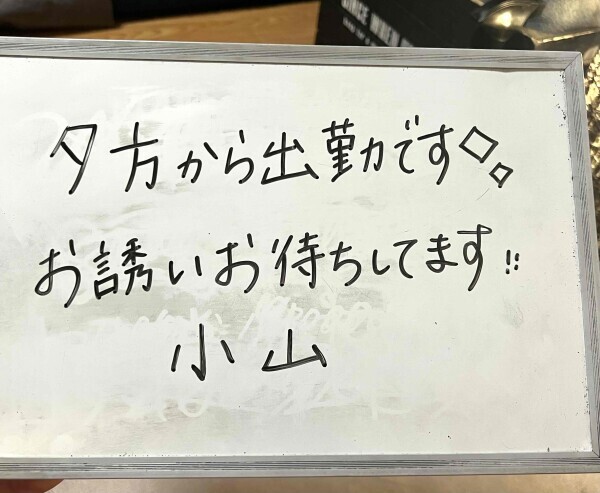 夕方から出勤です◇◇
お誘いお待ちしてます!!
小山